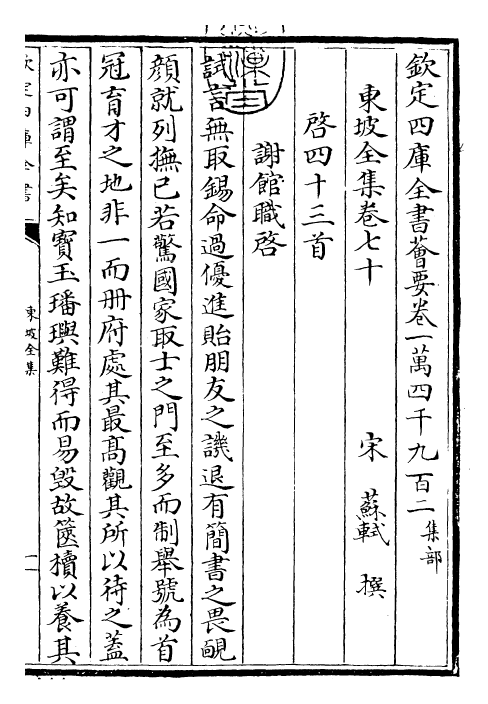 欽定四庫全書薈要卷一萬四千九百二 集部
東坡全集卷七十
宋 蘇軾 撰
啓四十三首
謝館職啓
試言無取錫命過優進貽朋友之譏退有簡書之畏靦
顔就列撫己若驚國家取士之門至多而制舉號為首
冠育才之地非一而冊府處其最高觀其所以待之蓋
亦可謂至矣知寳玉璠璵難得而易毁故篋櫝以養其
欽定四庫全書
東坡全集
一